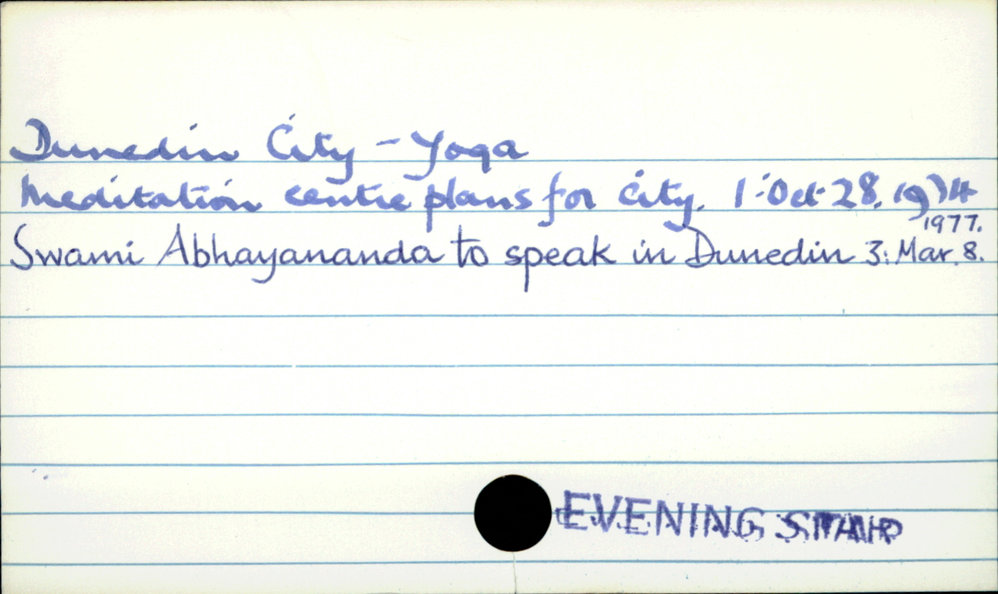 Dunedin City - Yoga
Meditation centre plans for city. 1: Oct 28. 1974
1977.
Swami Abhayananda to speak in Dunedin 3: Mar. 8.
EVENING STAR